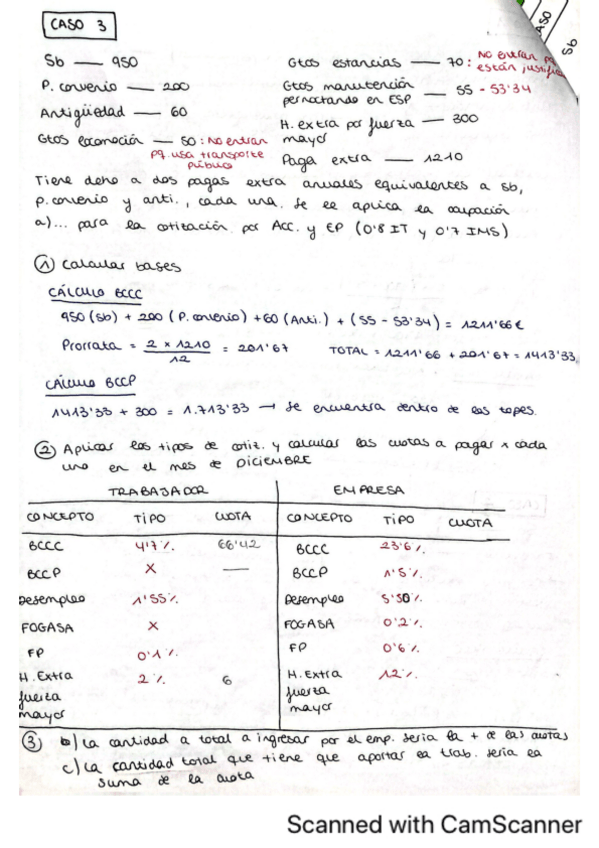 CASO 3
ASO
Sb
Sb — 950
P. convenio — 200
Antigüedad — 60
Gtos locomoción — 50 : No entran
pq. usa transporte
público
Gtos estancias — 70 : No entran pq
están justific
Gtos manutención
pernoctando en ESP — 55 - 53'34
H. extra por fuerza — 300
mayor
Paga extra — 1210
Tiene dcho a dos pagas extra anuales equivalentes a sb,
p. convenio y anti., cada una. Se le aplica la ocupación
a)... para la cotización por Acc. y EP (0'8 IT y 0'7 IMS)
① Calcular bases
CÁLCULO BCCC
950 (Sb) + 200 (P. convenio) + 60 (Anti.) + (55 - 53'34) = 1211'66 €
Prorrata = 2 x 1210 / 12 = 201'67 TOTAL = 1211'66 + 201'67 = 1413'33
CÁLCULO BCCP
1413'33 + 300 = 1.713'33 → Se encuentra dentro de los topes.
② Aplicar los tipos de cotiz. y calcular las cuotas a pagar x cada
uno en el mes de DICIEMBRE
TRABAJADOR EMPRESA
CONCEPTO TIPO CUOTA CONCEPTO TIPO CUOTA
BCCC 4'7% 66'42 BCCC 23'6%
BCCP X — BCCP 1'5%
Desempleo 1'55% Desempleo 5'50%
FOGASA X FOGASA 0'2%
FP 0'1% FP 0'6%
H. Extra 2% 6 H. Extra 12%
fuerza fuerza
mayor mayor
③ b) La cantidad a total a ingresar por el emp. seria la + de las cuotas
c) La cantidad total que tiene que aportar el trab. seria la
suma de la cuota
Scanned with CamScanner